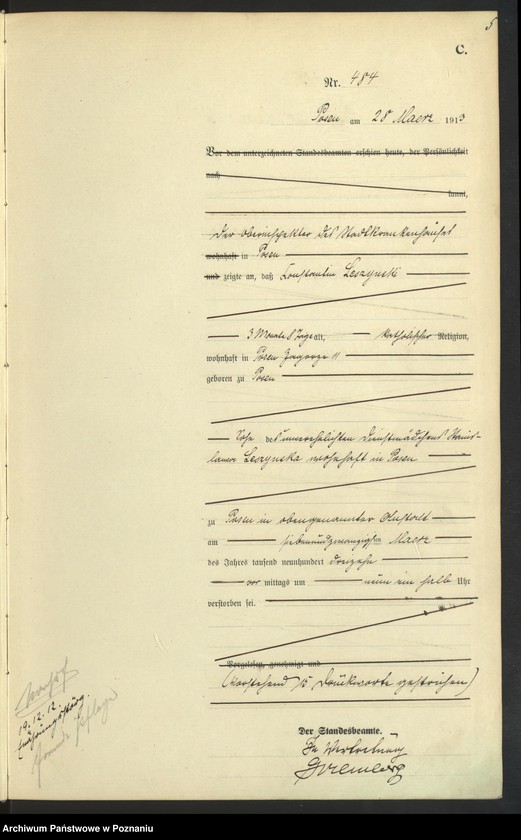 5
C.
Nr. 484
Posen am 28 Maerz 1913
Vor dem unterzeichneten Standesbeamten erschien heute, der Persönlichkeit
nach
kannt,
Der Oberinspektor des Stadtkrankenhauses
wohnhaft in Posen
und zeigte an, daß Constantin Leszynski
3 Monate 8 Tage alt, katholischer Religion,
wohnhaft in Posen Zagorze 11
geboren zu Posen
Sohn des unverehelichten Dienstmädchens Stanis-
lawa Leszynska wohnhaft in Posen
zu Posen in obengenannter Anstalt
am siebenundzwanzigsten Maerz
des Jahres tausend neunhundert dreizehn
vor mittags um neun ein halb Uhr
verstorben sei.
Vorgelesen, genehmigt und
(Vorstehend 15 Druckworte gestrichen)
19.12.12.
Ernährungsstörg.
Der Standesbeamte.
In Vertretung
Archiwum Państwowe w Poznaniu